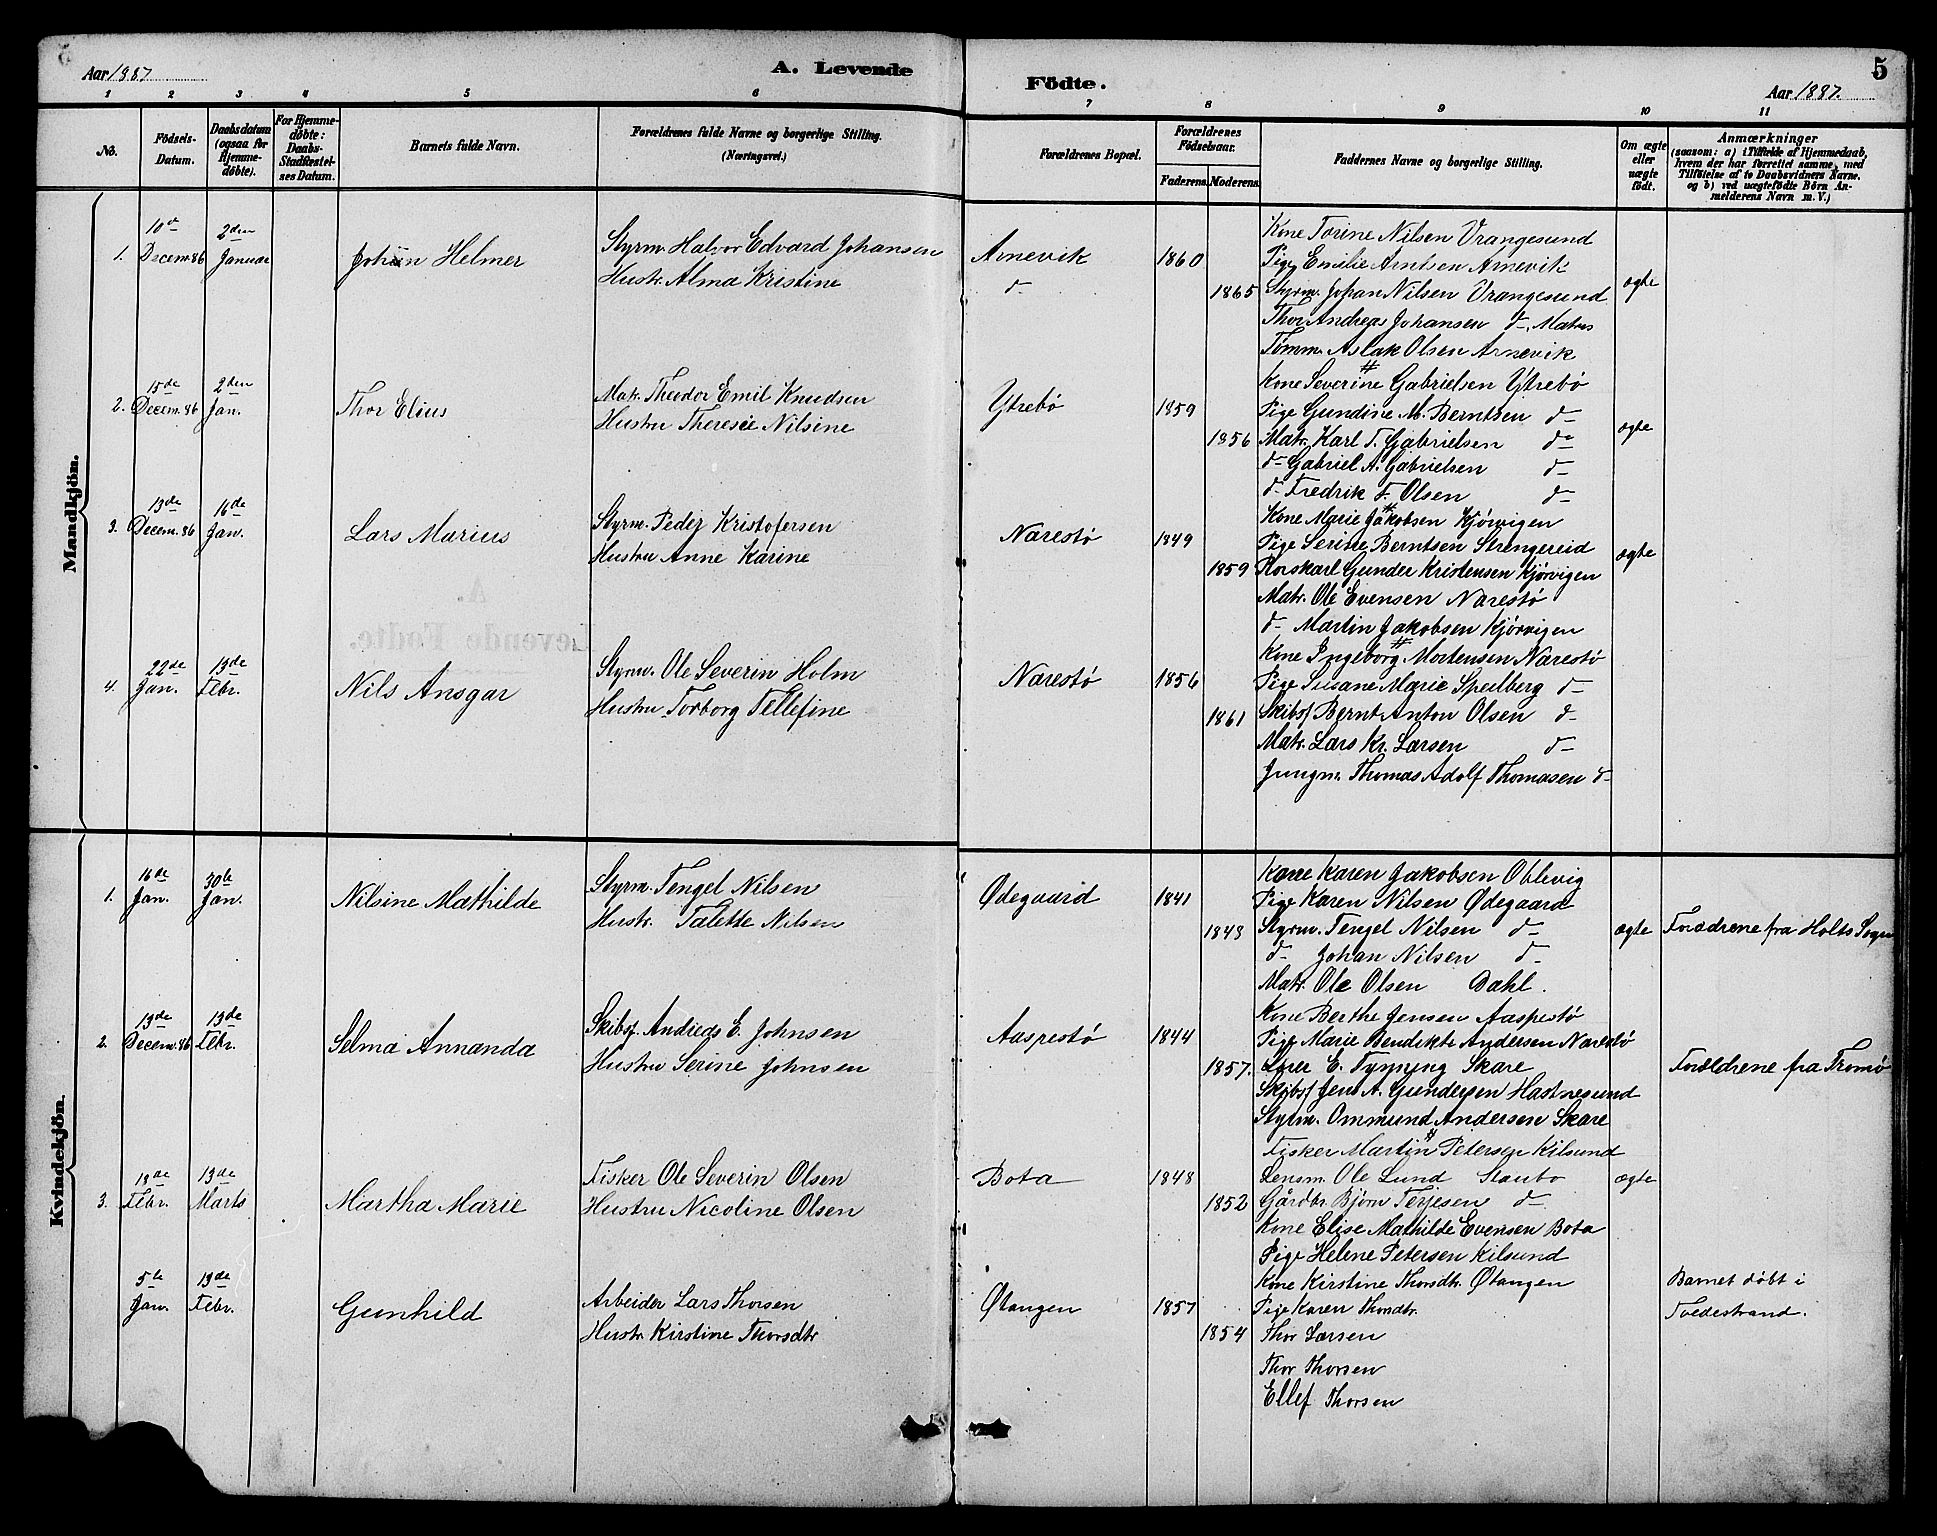 Aar 1887.
A. Levende
Födte.
Aar 1887.
5
1 2 3 4 5 6 7 8 9 10 11
No.
Födsels-Datum.
Daabsdatum (ogsaa for Hjemme-döbte).
For Hjemme-döbte: Daabs-Stadfæstel-ses Datum.
Barnets fulde Navn.
Forældrenes fulde Navne og borgerlige Stilling.
(Næringsvei.)
Forældrenes Bopæl.
Forældrenes Födselsaar.
Faderens. Moderens.
Faddernes Navne og borgerlige Stilling.
Om ægte eller uægte födt.
Anmærkninger
(saasom: a) i Tilfælde af Hjemmedaab,
hvem der har forrettet samme, med
Tilföielse af to Daabsvidners Navne.
og b) ved uægtefödte Börn An-
melderens Navn m. V.)
Mandkjön.
1. 10de Decem. 86 2den Januar Johan Helmer
Styrm. Halvor Edvard Johansen
Hustr. Alma Kristine
Arnevik
d-
1860
1865
Kone Torine Nilsen Vrangesund
Pige Emilie Arntsen Arnevik
Styrm. Johan Nilsen Vrangesund
Thor Andreas Johansen d-, Matros
Tømm. Aslak Olsen Arnevik
ægte
2. 15de Decem. 86 2den Jan. Thor Elius
Matr. Theodor Emil Knudsen
Hustru Theresie Nilsine
Ytrebö
1859
1856
Kone Severine Gabrielsen Ytrebö
Pige Gundine M. Berntsen d-
Matr. Karl T. Gabrielsen d-
d- Gabriel A. Gabrielsen d-
d- Fredrik F. Olsen d-
ægte
3. 13de Decem. 86 16de Jan. Lars Marius
Styrm. Peder Kristofersen
Hustru Anne Karine
Narestö
1849
1859
Kone Marie Jakobsen Kjörvigen
Pige Serine Berntsen Strengereid
Rorskarl Gunder Kristensen Kjörvigen
Matr. Ole Evensen Narestö
d- Martin Jakobsen Kjörvigen
ægte
4. 22de Jan. 13de Febr. Nils Ansgar
Styrm. Ole Severin Holm
Hustru Torborg Tellefine
Narestö
1856
1861
Kone Ingeborg Mortensen Narestö
Pige Susane Marie Speilberg d-
Skibsf. Bernt Anton Olsen d-
Matr. Lars Kr. Larsen d-
Jungm. Thomas Adolf Thomasen d-
Kvindekjön.
1. 16de Jan. 30te Jan. Nilsine Mathilde
Styrm. Tengel Nilsen
Hustr. Talette Nilsen
Ødegaard
1841
1843
Kone Karen Jakobsen Oblevig
Pige Karen Nilsen Ødegaard
Styrm. Tengel Nilsen d-
d- Johan Nilsen d-
Matr. Ole Olsen Dahl.
ægte
Forældrene fra Holts Sogn
2. 13de Decem. 86 13de Febr. Selma Annanda
Skibsf. Andreas E. Johnsen
Hustru Serine Johnsen
Aaspestö
1844
1857.
Kone Berthe Jensen Aaspestö
Pige Marie Bendikte Andersen Narestö
E. Skare
Skibsf. Jens A. Gundersen Hastnesund
Styrm. Ommund Andersen Skare
Forældrene fra Tromö
3. 18de Febr. 13de Marts Martha Marie
Fisker Ole Severin Olsen
Hustru Nicoline Olsen
Bota
1848
1852
Fisker Martin Petersen Kilsund
Lensm. Ole Lund Staubo
Gårdbr. Bjørn Terjesen d-
Kone Elise Mathilde Evensen Bota
Pige Helene Petersen Kilsund
ægte
5te Jan. 13de Febr. Gunhild
Arbeider Lars Thorsen
Hustr. Kirstine Thorsdtr
Østangen
1857
1854
Kone Kirstine Thorsdtr. Østangen
Pige Karen Thorsdtr.
Thor Larsen
Thor Thorsen
Ellef Thorsen
Barnet döbt i
Tvedestrand.